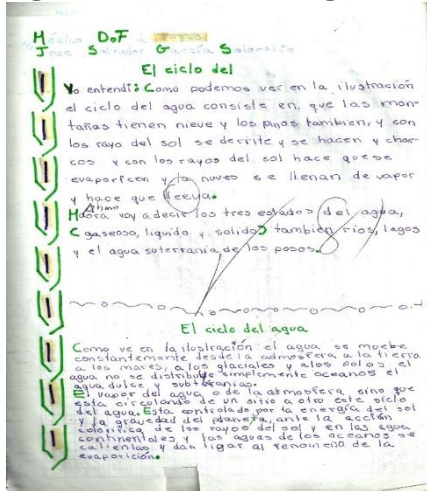 México D.F a
José Salvador García Solorzano
El ciclo del
Yo entendi: Como podemos ver en la ilustración
el ciclo del agua consiste en, que las mon-
tañas tienen nieve y los pinos tambien, y con
los rayo del sol se derrite y se hacen y char-
cos y con los rayos del sol hace que se
evaporicen y la nuves se llenan de vapor
y hace que lleeva.
Ahora
Haora voy a decir los tres estados del agua,
(gaseoso, liquido y solido) también ríos, lagos
y el agua suterrania de los posos.
El ciclo del agua
Como ve en la ilustración el agua se moebe
constantemente desde la admosfera a la tierra
a los mares, a los glaciales y alos polos el
agua no se distribuye simplemente oceanos el
agua dulce y subterranias.
El vapor del agua o de la atmosfera sino que
esta circulando de un sitio a otro este siclo
del agua. Esta controlado por la energía del sol
y la gravedad del planeta, ante la acción
colorifica de los rayos del sol y en las agua
continentales y las aguas de los oceanos se
calientas y dan ligar al fenoineña de la
evaporición.